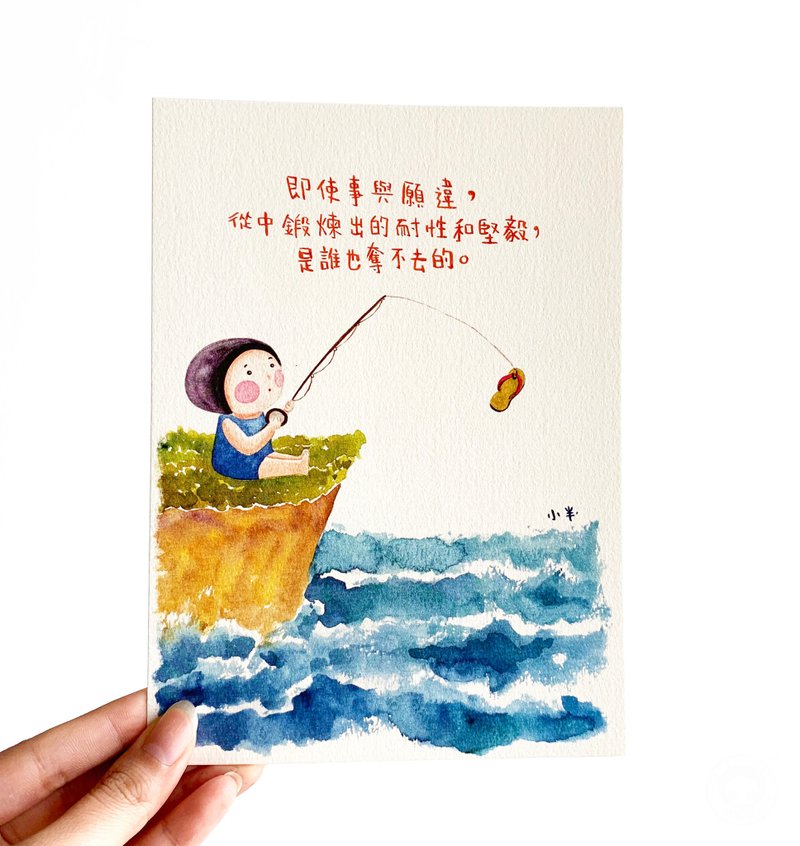 即使事與願違，
從中鍛煉出的耐性和堅毅，
是誰也奪不去的。
小半